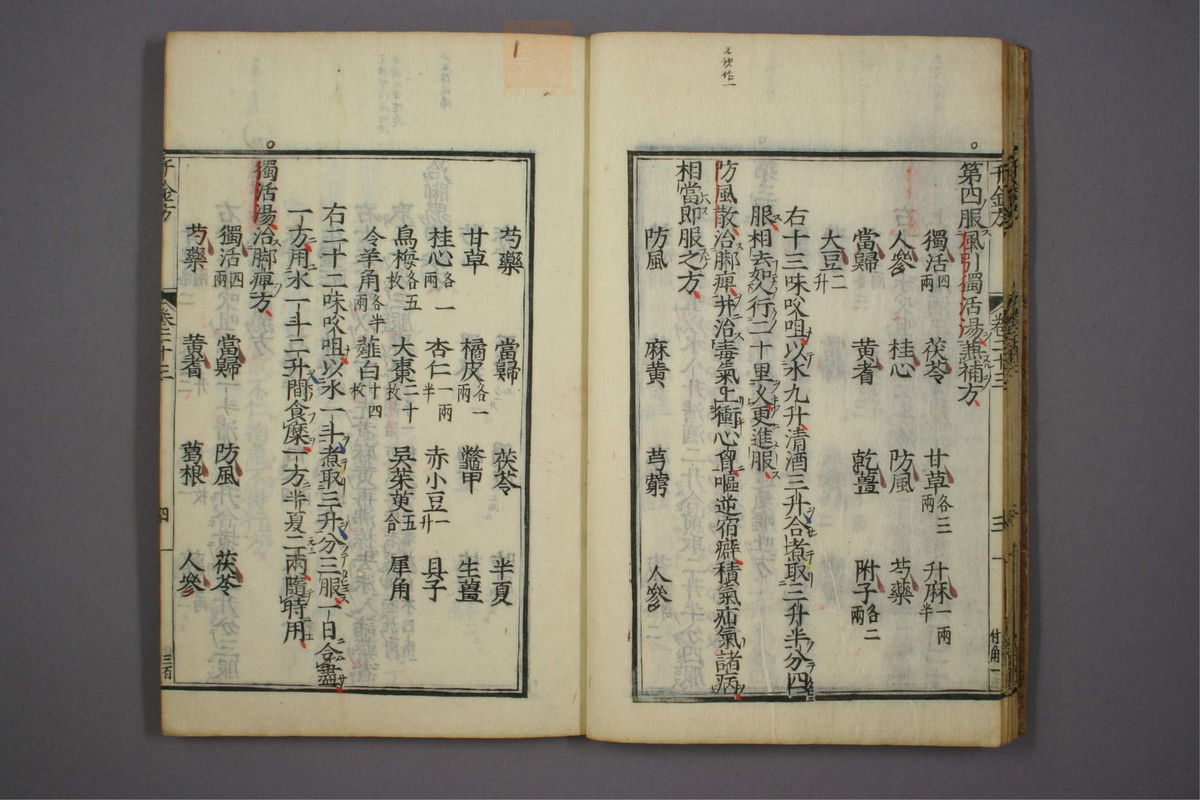 元硃作一
千金方 卷二十三 三 付角一
第四服風引獨活湯兼補方
獨活四兩 茯苓 甘草各三兩 升麻一兩半
人參 桂心 防風 芍藥
當歸 黃耆 乾薑 附子各二兩
大豆二升
右十三味㕮咀以水九升清酒三升合煮取三升半分四
服相去如人行二十里乆更進服
防風散治脚痺并治毒氣上衝心胷嘔逆宿癖積氣疝氣諸病
相當即服之方
防風 麻黃 芎藭 人參
芍藥 當歸 茯苓 半夏
甘草 橘皮各一兩 鼈甲 生薑
桂心各一兩 杏仁一兩半 赤小豆一升 貝子
烏梅各五枚 大棗二十枚 吳茱萸五合 犀角
令羊角各半兩 薤白十四枚
右二十二味㕮咀以水一斗煮取三升分三服一日令盡
一方用水一斗二升間食糜一方半夏二兩隨時用
獨活湯治脚痺方
獨活四兩 當歸 防風 茯苓
芍藥 黃耆 葛根 人參
千金方 卷二十三 四 三百